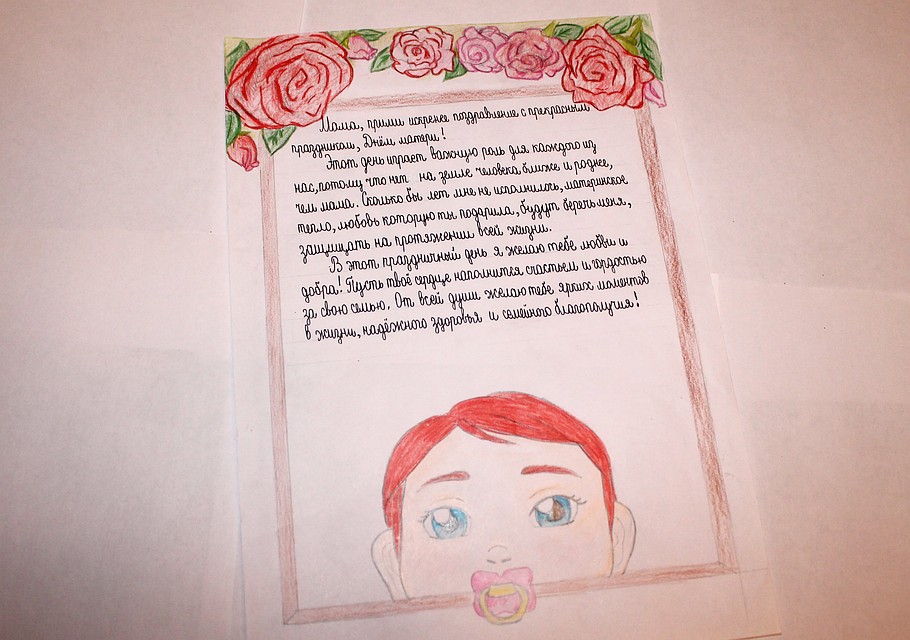 Мама, прими искренее поздравление с прекрасным
праздником, Днём матери!
Этот день играет важную роль для каждого из
нас, потому что нет на земле человека ближе и роднее,
чем мама. Сколько бы лет мне не исполнилось, материнское
тепло, любовь которую ты подарила, будут беречь меня,
защищать на протяжении всей жизни.
В этот праздничный день я желаю тебе любви и
добра! Пусть твоё сердце наполнится счастьем и гордостью
за свою семью. От всей души желаю тебе ярких моментов
в жизни, надёжного здоровья и семейного благополучия!